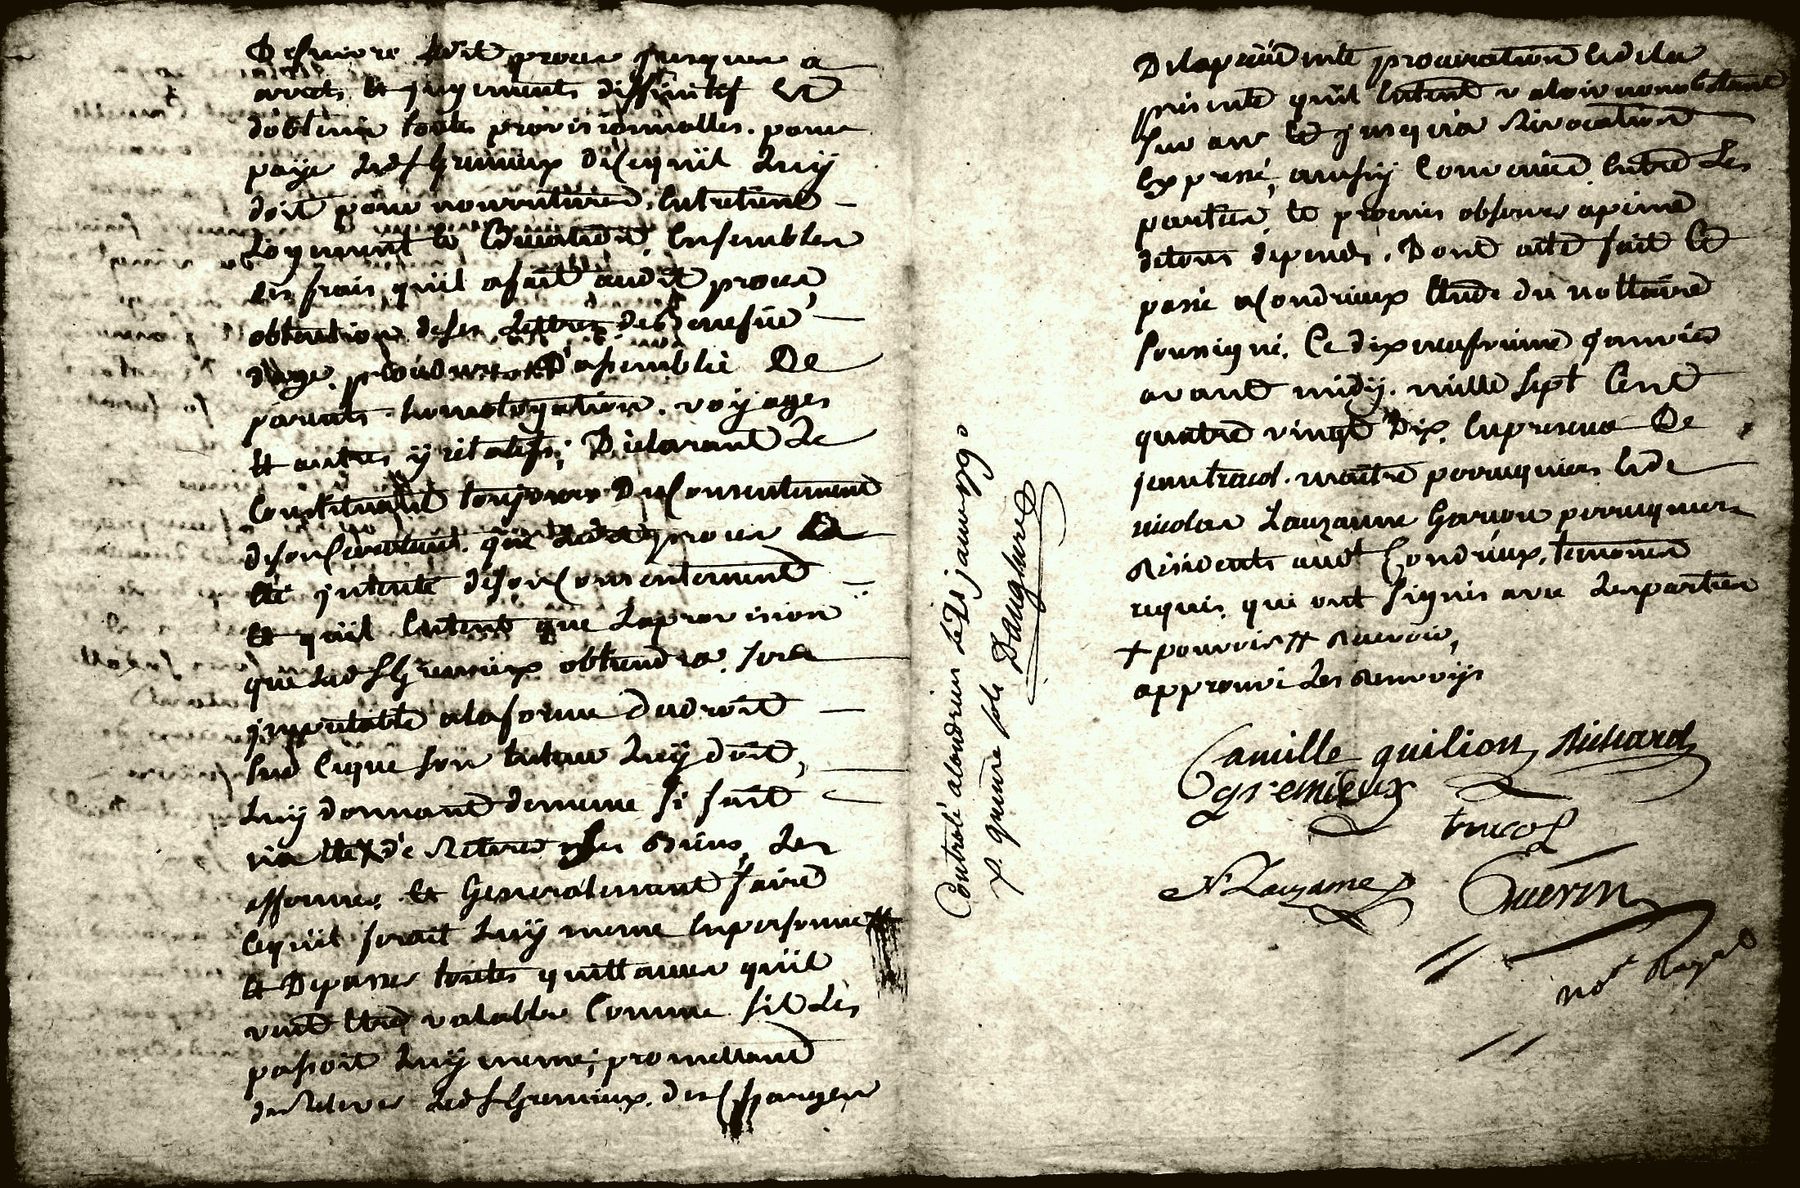 De suivre ledit proces jusques a
arrets et jugements diffinitif et
dobtenir toutes provisionnelles. pour
paye led Sr Gremieux de ce quil luy
doit pour nourritures, Entretient
Logement et Education, Ensembles
les frais quil a fait audit proces
obtention deses Lettres de benefice
dage, dasemblée De
parents homologation. voyages
Et autres y relatifs; Declarant Le
Constituant toujours Du Consentement
de son Curateur. que proces
Eté jntenté de son Consentement
Et quil Entent que Laprovision
que Led Sr Gremieux obtiendra. sera
jmputable a la forme du droit
sur Ceque son tuteur Luy doit,
Luy donnant de meme si fait
de ses Biens, Les
affermer. Et Generalement faire
Cequil feroit Luy meme En personne
Et De passer toutes quittances quil
vaut Etre valables Comme sil Les
passoit Luy meme; promettant
de Relever Led Sr Gremieux. des Charges
De la presente procuration Et de la
presente quil Entent valoir nonobstant
sur an Et jusqua Revocation
Expresse, aussy Convenue Entre Les
parties, Et promis observer a peine
de tous depends. Dont acte fait Et
passé a Condrieux Etude du nottaire
soussigné. Ce dix neufvieme janvier
avant midy. mille sept Cent
quatre vingt Dix. En presence De
jean tracol. maitre perruquier Et de
nicolas Lauzanne Garcon perruquier
Residents audt Condrieux. temoins
requis. qui ont signés avec Les parties
+ pouvoir # Recevoir,
approuvé Les Renvoys
Camille quilion Richard
gremieux
tracol
N Lauzanne
Guerin
nore Royal
Controlé a Condrieu le 21 janv 1790
R. quinze sols Dauglure